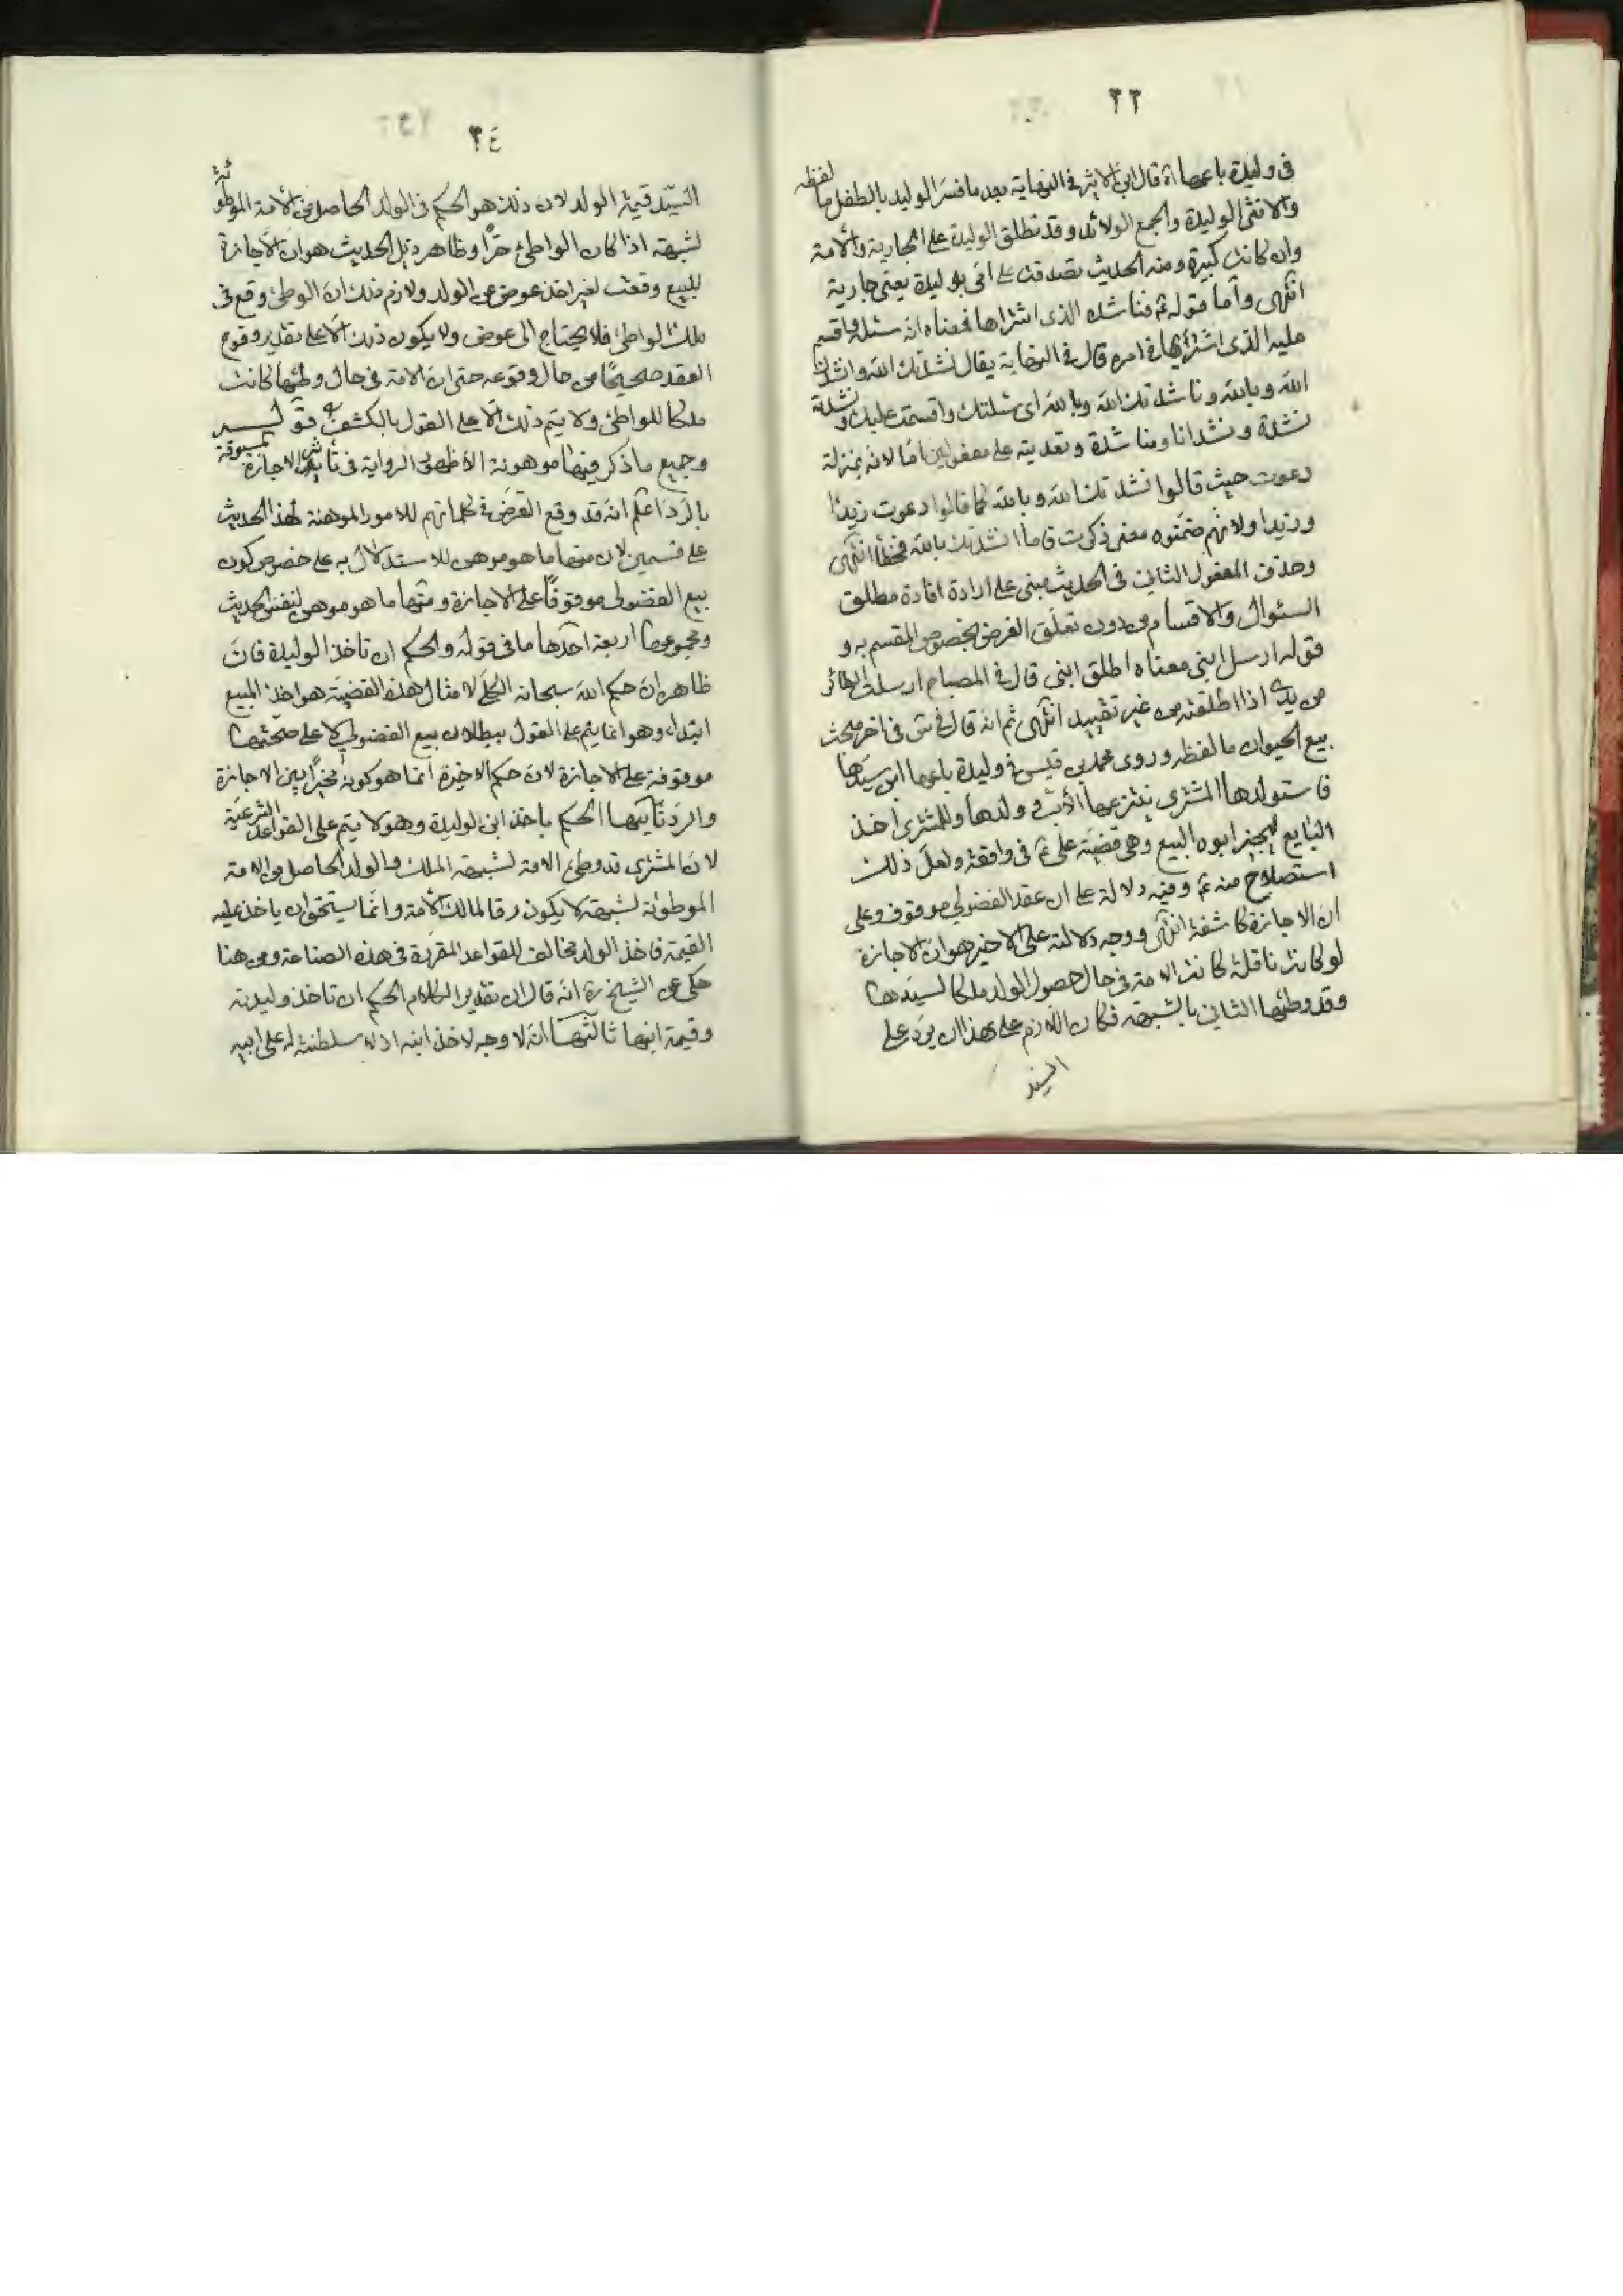 ٣٣
في وليدة باعها اه قال ابن الاثير في النهاية بعد ما فسر الوليد بالطفل ما لفظه
والانثى الوليدة والجمع الولائد وقد تطلق الوليدة على الجارية والأمة
وان كانت كبيرة ومنه الحديث تصدقت على امّي بوليدة يعني جارية
انتهى وأما قوله ع فناشده الذي اشتراها فمعناه انه سئله واقسم
عليه الذي اشتراها في امره قال في النهاية يقال نشدتك الله وانشدك
الله وبالله وناشدتك الله وبالله اي سئلتك واقسمت عليك ونشدته
نشدة ونشدانا ومناشدة وتعديته على مفعولين امّا لانه بمنزلة
دعوت حيث قالوا نشدتك الله وبالله كما قالوا دعوت زيدًا
وبزيد او لانهم ضمّنوه معنى ذكرت فاما انشدتك بالله فخطأ انتهى
وحذف المفعول الثاني في الحديث مبني على ارادة افادة مطلق
السئوال والاقسام من دون تعلّق الغرض بخصوص المقسم به و
قوله ارسل ابني معناه اطلق ابني قال في المصباح ارسلت الطائر
من يدي اذا اطلقته من غير تقييد انتهى ثم انه قال في س في اخر مبحث
بيع الحيوان ما لفظه وروى محمد بن قيس في وليدة باعها ابن سيّدها
فاستولدها المشتري ينتزعها الأب وولدها وللمشتري اخذ
البايع ليجيز ابوه البيع وهي قضيّة علي ع في واقعة ولعل ذلك
استصلاح منه ع وفيه دلالة على ان عقد الفضولي موقوف وعلى
ان الاجازة كاشفة انتهى ووجه دلالته على الاخير هو ان الاجازة
لو كانت ناقلة كانت الامة في حال حصول الولد ملكا لسيّدها
وقد وطئها الثاني بالشبهة فكان اللازم على هذا ان يرد على
السيد
٣٤
السيّد قيمة الولد لان ذلك هو الحكم في الولد الحاصل من الأمة الموطوئة
لشبهة اذا كان الواطئ حرًا وظاهر ذيل الحديث هو ان الاجازة
للبيع وقعت لغير اخذ عوض عن الولد ولازم ذلك ان الوطئ وقع في
ملك الواطئ فلا يحتاج الى عوض ولا يكون ذلك الّا على تقدير وقوع
العقد صحيحًا من حال وقوعه حتى ان الامة في حال وطئها كانت
ملكا للواطئ ولا يتم ذلك الّا على القول بالكشف قوله
وجميع ما ذكر فيها موهونة الّا ظهور الرواية في تأثير الاجازة المسبوقة
بالرد اعلم انه قد وقع التعرض في كلماتهم للامور الموهنة لهذا الحديث
على قسمين لان منها ما هو موهن للاستدلال به على خصوص كون
بيع الفضولي موقوفًا على الاجازة ومنها ما هو موهن لنفس الحديث
ومجموعها اربعة احدها ما في قوله والحكم ان تاخذ الوليدة فان
ظاهره ان حكم الله سبحانه الكلّي لامثال هذه القضيّة هو اخذ المبيع
ابتداء وهو انما يتم على القول ببطلان بيع الفضولي لا على صحّتها
موقوفة على الاجازة لان حكم الاخيرة انما هو كونه مخيرًا بين الاجازة
والرد ثانيها الحكم باخذ ابن الوليدة وهو لا يتم على القواعد الشرعيّة
لان المشتري قد وطئ الامة لشبهة الملك والولد الحاصل من الامة
الموطوئة لشبهة لا يكون رقا لمالك الأمة وانّما يستحق ان ياخذ عليه
القيمة فاخذ الولد مخالف للقواعد المقرّرة في هذه الصناعة ومن هنا
حكي عن الشيخ ره انه قال ان تقدير الكلام الحكم ان تاخذ وليدته
وقيمة ابنها ثالثها انه لا وجه لاخذ ابنه اذ لا سلطنة له على ابيه